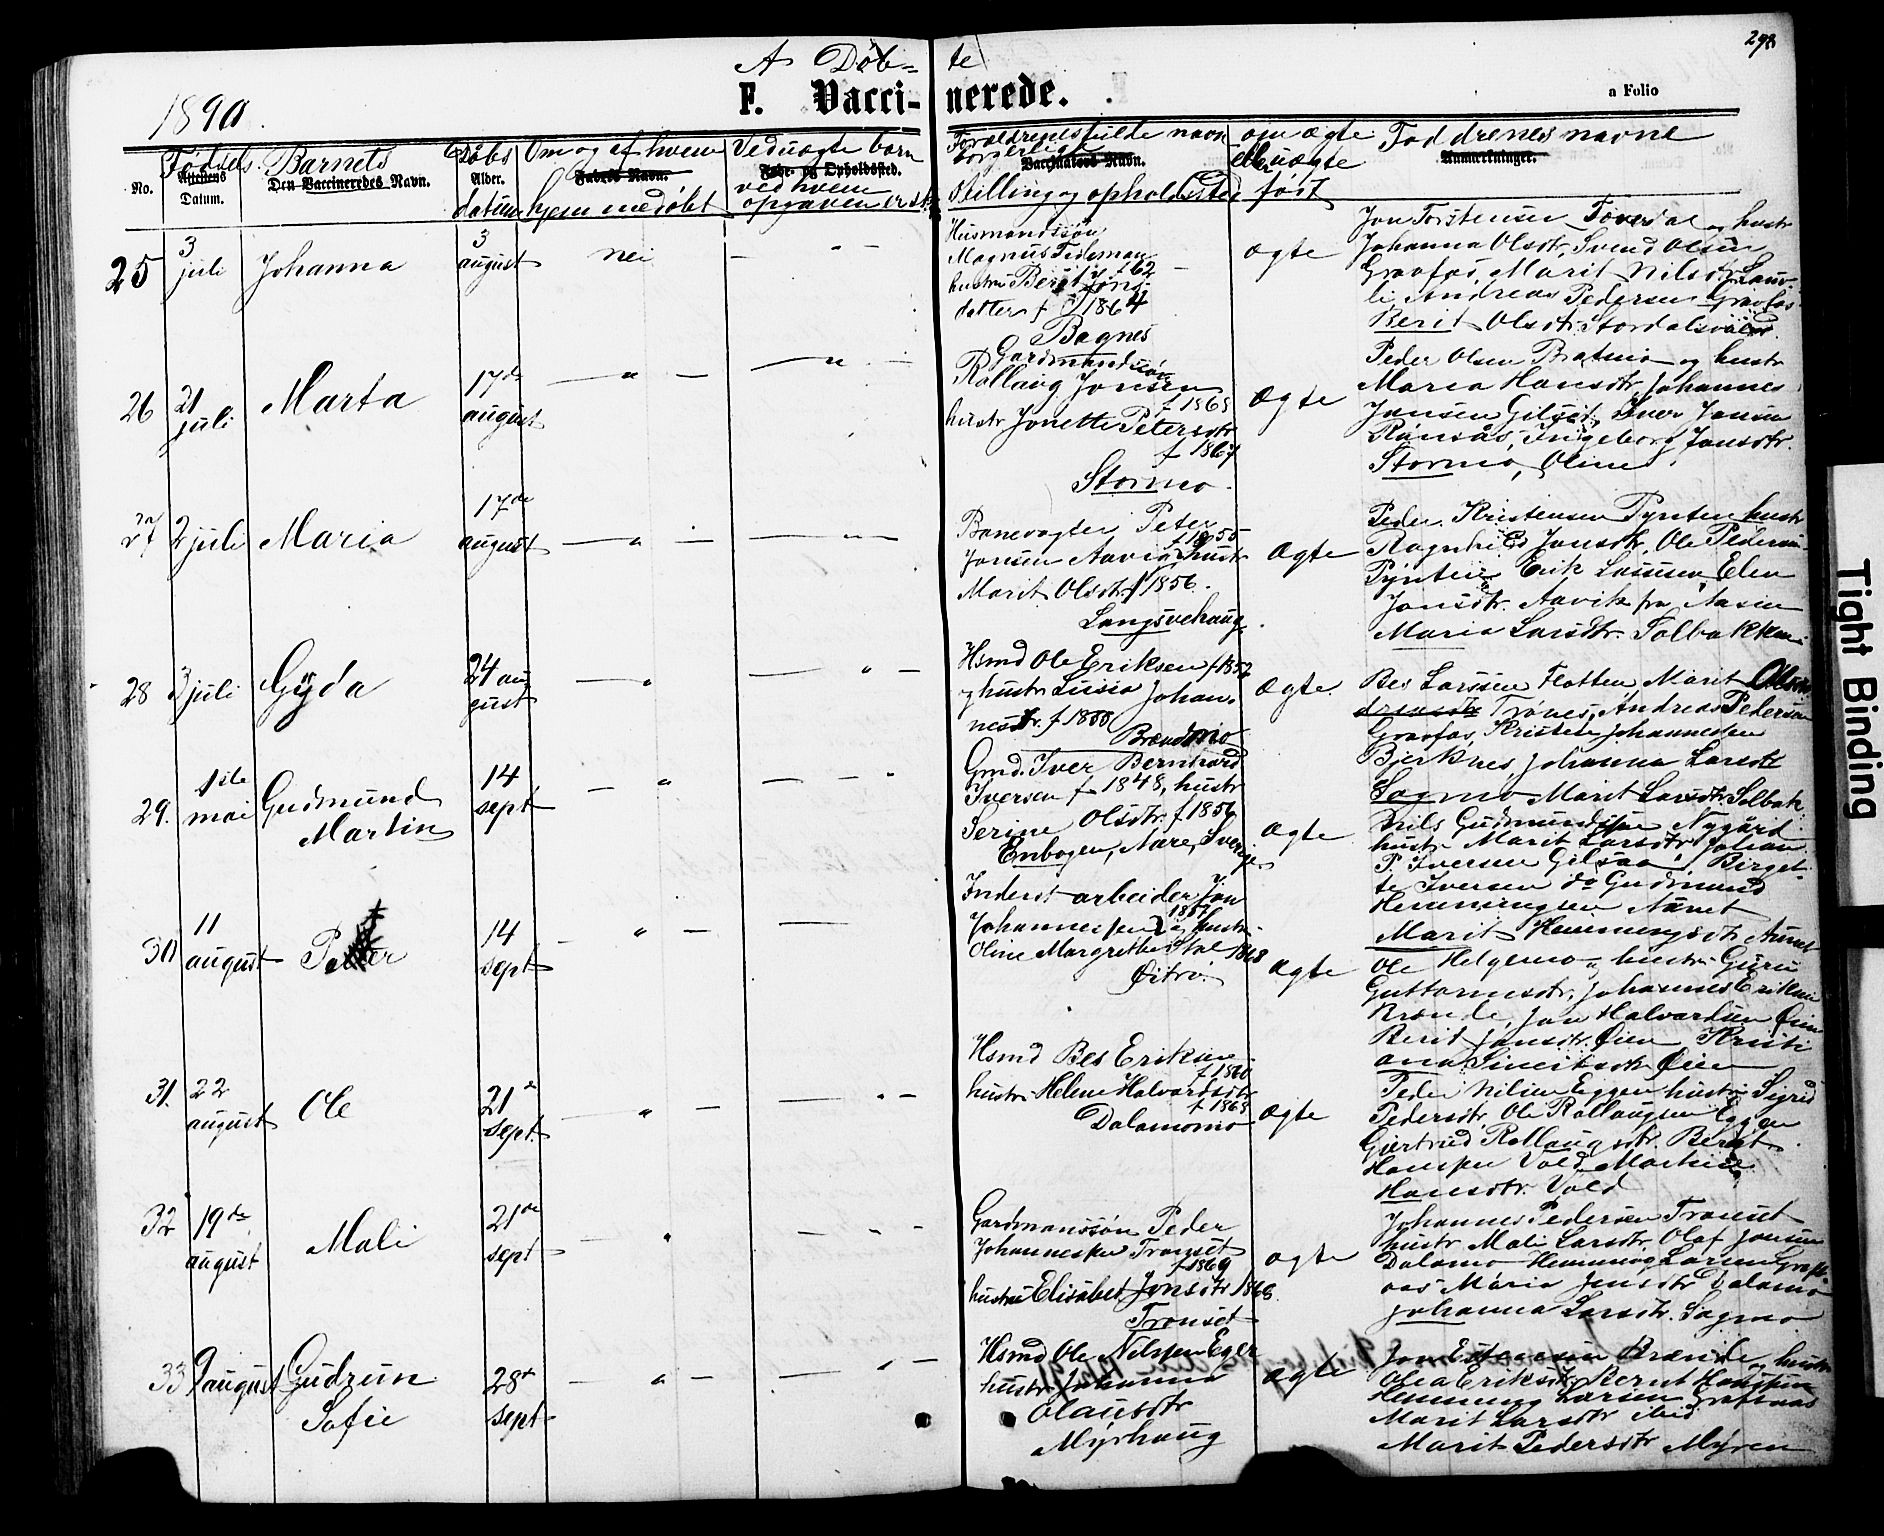 298
A Døb= te
1890.
F. Vacci- nerede.
a Folio
No.
Fødsels
Attestens
Datum.
Barnets
Den Vaccineredes Navn.
Døbs
Alder.
datum
Om og af hvem
Fadrens Navn.
hjemmedøbt
Ved uægte børn
Føde- og Opholdssted.
ved hvem
opgaven er sk
Forældrenes fulde navn
borgerlige
Vaccinators Navn.
Stilling og opholdssted
om ægte
eller uægte
født
Faddrenes navne
Anmærkninger.
25
3
juli
Johanna
3
august
nei
Husmandssøn
Magnus Tideman
hustru Berit Jons-
datter f 1864
Bagnes
ægte
Jon Torstensen Toverdal og hustr
Johanna Olsdtr, Svend Olsen
Gravfas, Marit Nilsdtr Sauv-
li, Andreas Pedersen Gravfas
Berit Olsdtr. Stordalsvold
26
21
juli
Marta
17de
august
Gardmandssøn
Rollaug Jonsen
f 1865
hustr Jonette Petersdtr
f 1867
Stormo
Ægte
Peder Olsen Bratmo og hustr
Maria Hansdtr, Johannes
Jonsen Gilset, Iver Jonsen
Rønsås, Ingeborg Jonsdtr.
Stormo, Oline
27
2 juli
Maria
17de
august
Banevogter Peter
f 1855
Jonsen Aavik, hustr
Marit Olsdtr f 1856.
Langsvehaug.
Ægte
Peder Kristensen Pynten hustr
Ragnhild Jonsdtr, Ole Pedersen
Pynten, Erik Larssen, Elen
Jonsdtr. Aavik fra Aasen
Maria Larsdtr Solbakken
28
3 juli
Gyda
24 au
gust
Hsmd Ole Eriksen f 1852
og hustr Lusia Johan-
nesdtr. f 1855
Brændmo
Ægte.
Bes Larssen Flotten, Marit Olsdtr
Trønes, Andreas Pedersen
Gravfas, Kristen Johannesen
Bjerknes, Johanna Larsdtr
Sagmo, Marit Larsdtr Solbak
29.
1ste
mai
Gudmund
Martin
14
sept
Gmd. Iver Bernhard
Iversen f 1848, hustr
Serine Olsdtr. f 1856
Enbogen, Aare, Sverige
Ægte
Nils Gudmundsen Nygård
hustr Marit Larsdtr Johan
P. Iversen Gilsaa, Birget-
te Iversen do Gudmund
Hemmingsen Aunet
Marit Hemmingsdtr Aunet
30
11
august
Petter
14
sept
Inderst arbeider Jon
1857
Johannessen og hustr
Oline Margrethe 1868
Øitrø.
Ægte
Ole Helgemo og hustr Guru
Guttormsdtr, Johannes Eriksen
Brænde, Jon Halvardsen Øien
Berit Jonsdtr. Øien, Kristi
ana Øien
31.
22
august
Ole
21de
sept.
Hsmd Bes Eriksen
f 1860
hustr Helene Halvardsdtr
f 1863
Dalamomo
Ægte
Peder Nilsen Eggen hustr Sigrid
Pedersdtr, Ole Rollaugsen Eggen
Gjertrud Rollaugsdtr. Berat
Hansen Vold, Martine
Hansdtr. Vold
32
19de
august
Mali
21de
sept
Gardmanssøn Peder
Johannessen Tronset
f 1869
hustru Elisabet Jonsdtr 1868
Tronset
ægte
Johannes Pedersen Tronset
hustr Mali Larsdtr Olaf Jonsen
Dalamo Hemming Larsen Graft-
aas Maria Jonsdtr Dalamo
Johanna Larsdtr. Sagmo
33
9 august
Gudrun
Sofie
28de
sept
Hsmd Ole Nilssen Eger
hustr Johanna
Olausdtr
Myrhaug
ægte
Jon Estensen Brænde og hustr
Olea Eriksdtr Bernt Hanssen
Hemming Larsen Graftaas
Marit Larsdtr ibid
Marit Pedersdtr Myren
Tight Binding